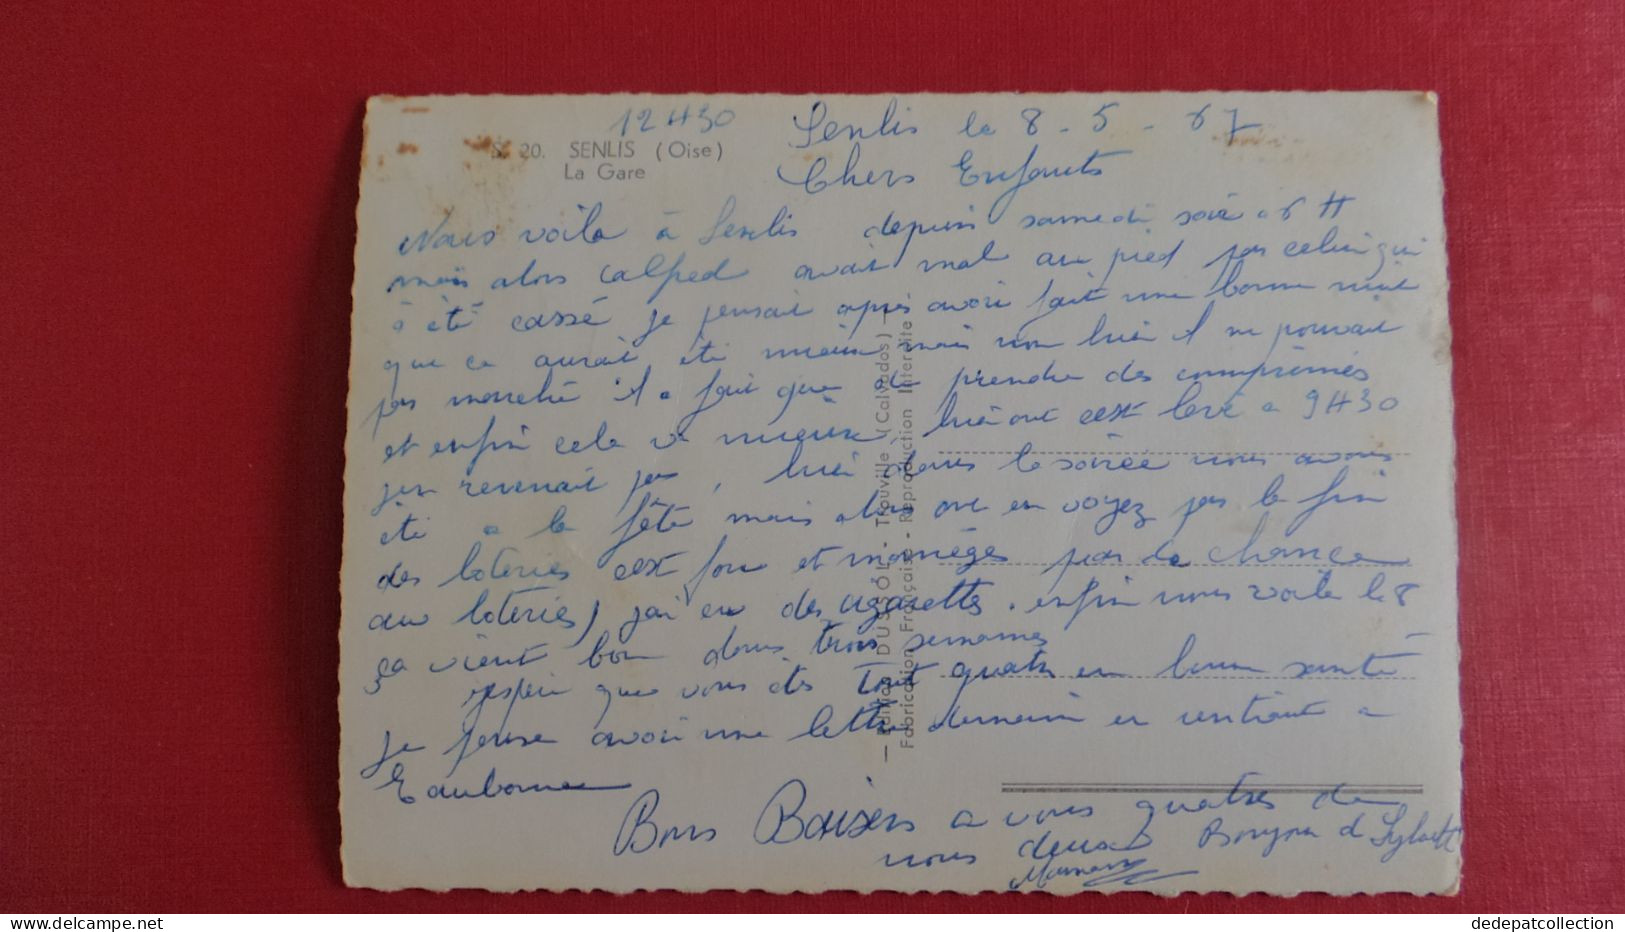 12H30 Senlis le 8 - 5 - 67
S. 20. SENLIS (Oise)
La Gare
Chers Enfants
Nous voila à Senlis depuis samedi soir a 6 H
mais alors avait mal au pied pas celui qui
à été cassé je pensait après avoir fait une bonne nuit
que ce aurait été mieux mais non hier il ne pouvait
pas marché il a fait que de prendre des comprimés
et enfin cela va mieux, hier ont cest levé a 9H30
jen revenait pas, hier dans la soirée nous avons
été a la fête mais alors ont en voyez pas la fin
des loteries cest fou et manèges pas de chance
au loteries, jai eu des cigarettes. enfin nous voila le 8
ça vient bon dans trois semaines
jespère que vous dès tout quatre en bonne santé
je pense avoir une lettre demain en rentrant a
Eaubonne
Bons Baisers a vous quatres de
nous deux Bonjour d
Maman
— Edition DUSSOL - Trouville (Calvados) —
Fabrication Française - Reproduction Interdite
dedepatcollection